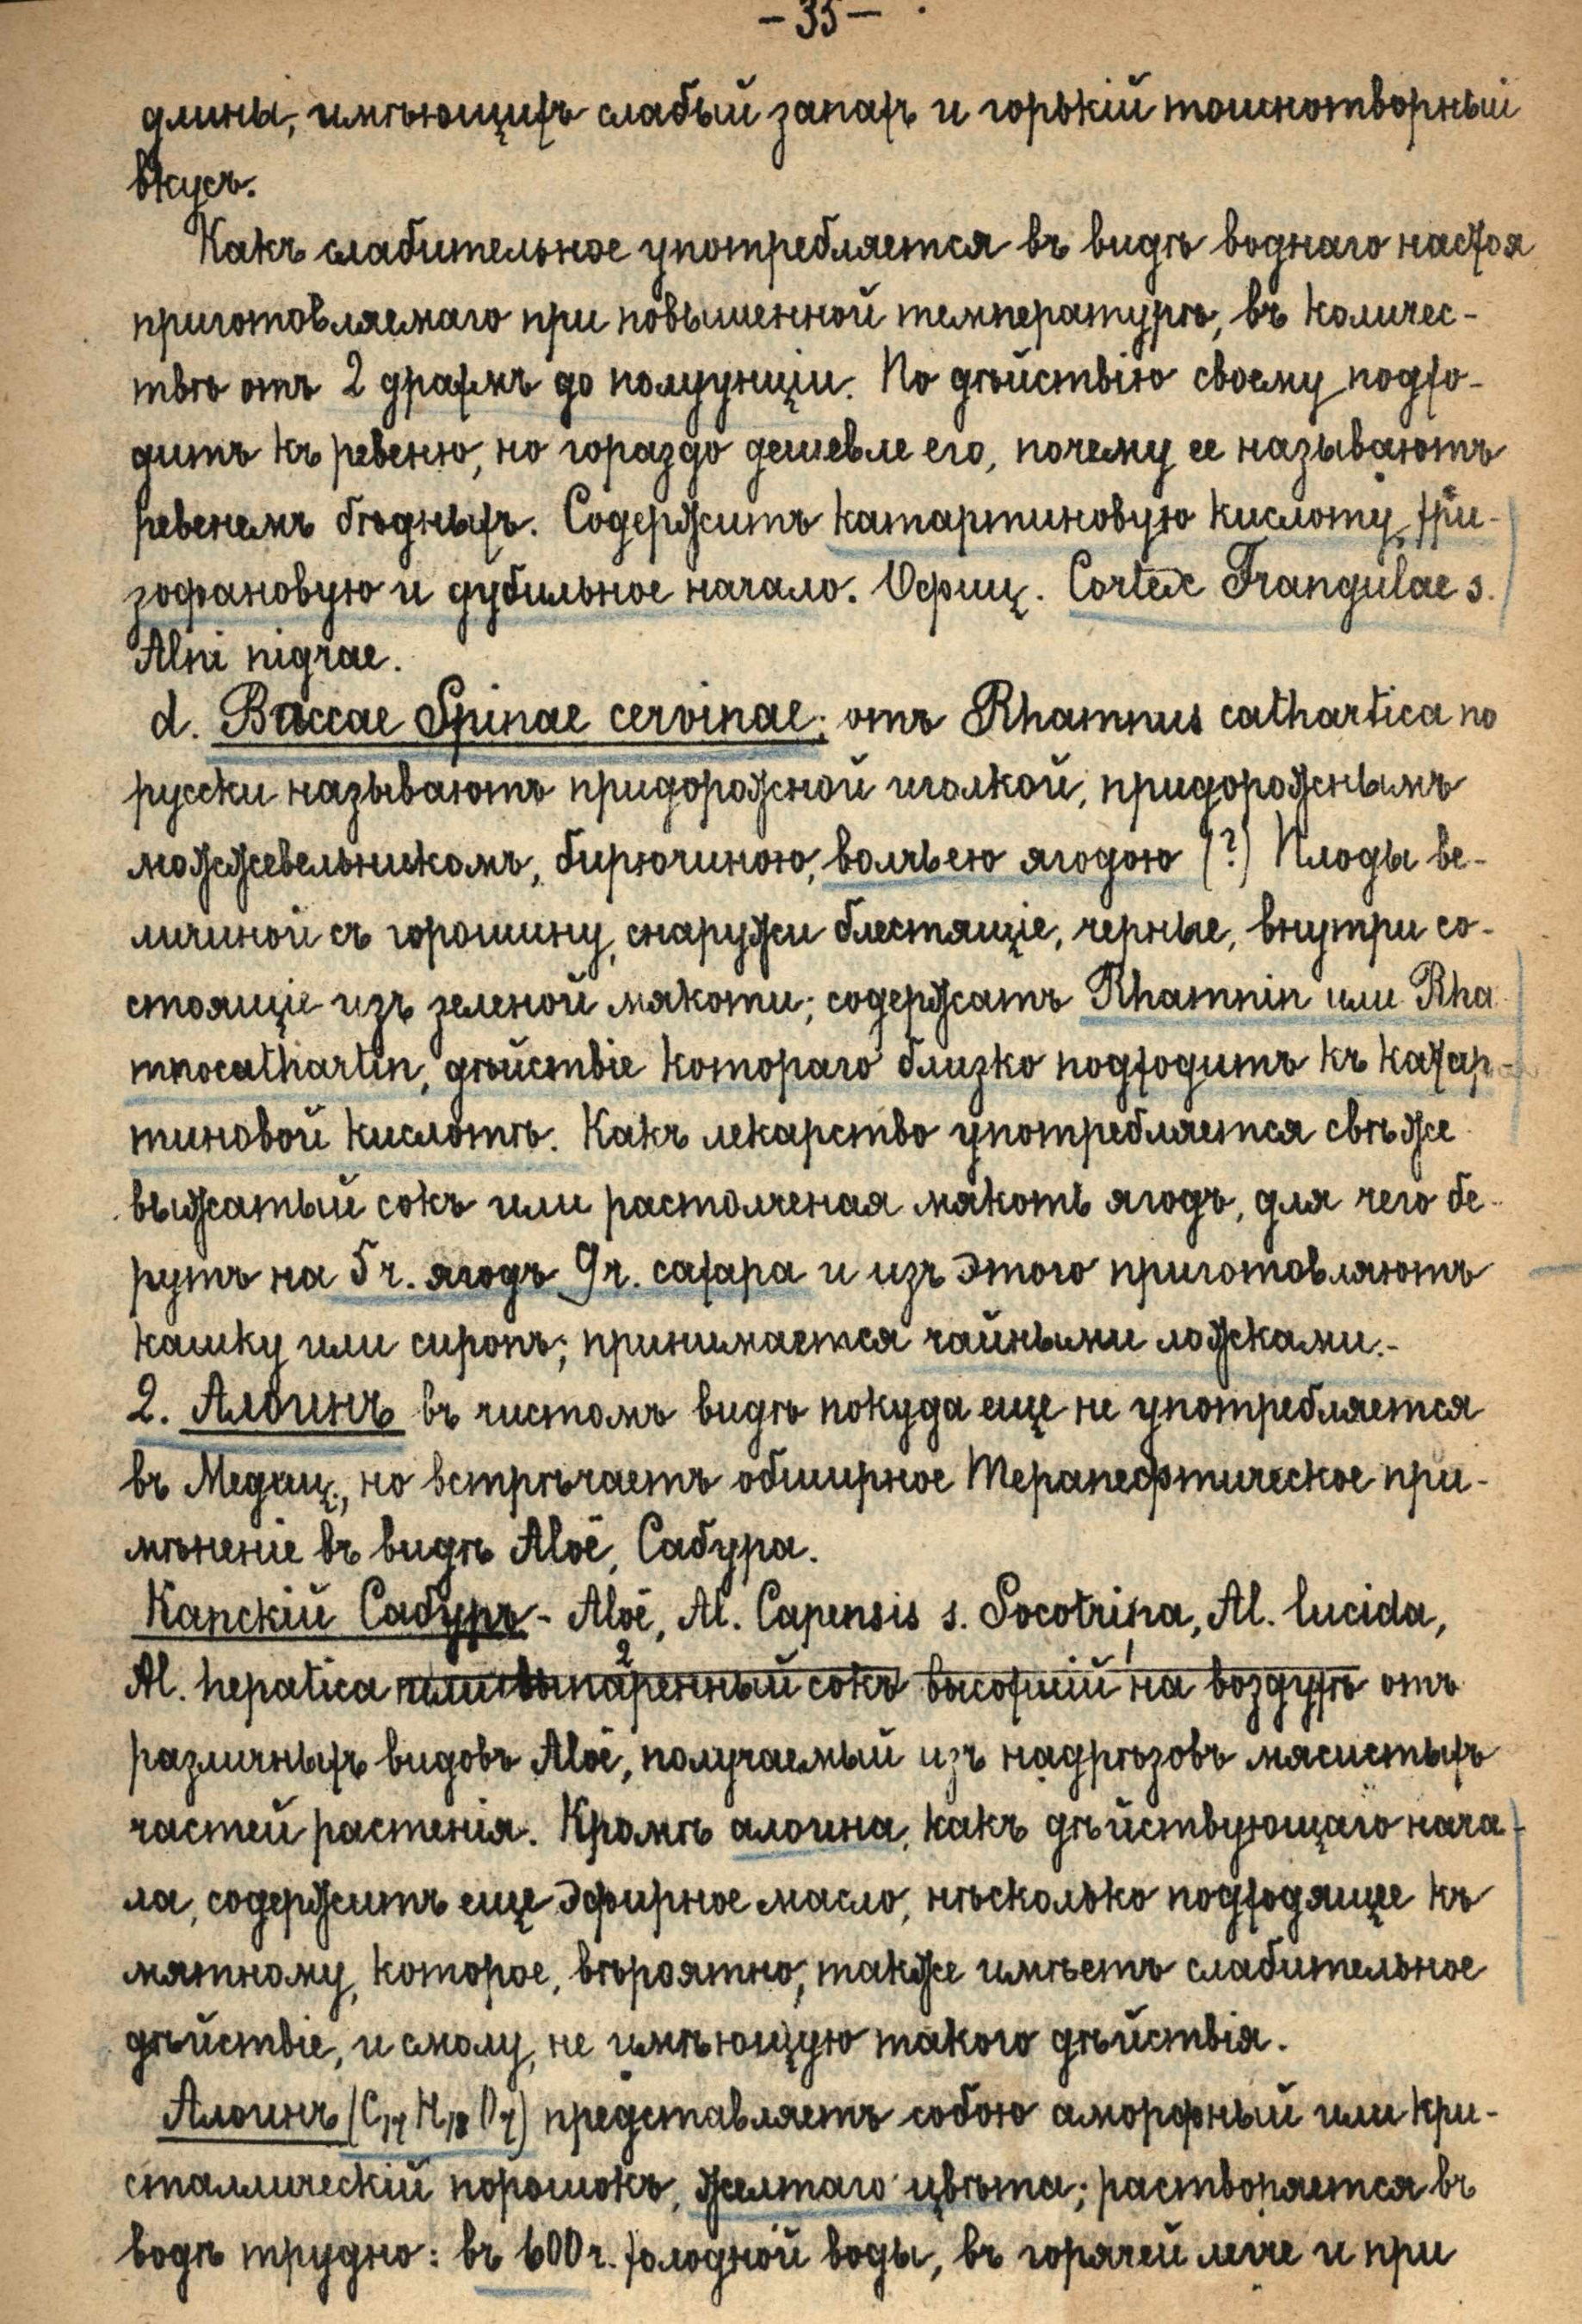 - 35 -
длины, имѣющихъ слабый запахъ и горькій тошнотворный
вкусъ.
Какъ слабительное употребляется въ видѣ воднаго настоя
приготовляемаго при повышенной температурѣ, въ количес-
твѣ отъ 2 драхмъ до полуунціи. По дѣйствію своему подхо-
дитъ къ ревеню, но гораздо дешевле его, почему ее называютъ
ревенемъ бѣдныхъ. Содержитъ катартиновую кислоту, хри-
зофановую и дубильное начало. Офиц. Cortex Frangulae s.
Alni nigrae.
d. Baccae Spinae cervinae; отъ Rhamnus cathartica по
русски называютъ придорожной иголкой, придорожнымъ
можжевельникомъ, бирючиною, волчьею ягодою (?) Плоды ве-
личиной съ горошину, снаружи блестящіе, черные, внутри со-
стоящіе изъ зеленой мякоти; содержатъ Rhamnin или Rha-
mnocathartin, дѣйствіе котораго близко подходитъ къ катар-
тиновой кислотѣ. Какъ лекарство употребляется свѣже
выжатый сокъ или растолченая мякоть ягодъ, для чего бе-
рутъ на 5 ч. ягодъ 9 ч. сахара и изъ этого приготовляютъ
кашку или сиропъ; принимается чайными ложками.-
2. Алоинъ въ чистомъ видѣ покуда еще не употребляется
въ Медиц., но встрѣчаетъ обширное Терапевтическое при-
мѣненіе въ видѣ Aloë, Сабура.
Капскій Сабуръ - Aloë, Al. Capensis s. Socotrina, Al. lucida,
Al. hepatica или выпаренный 2 сокъ высохшій 1 на воздухѣ отъ
различныхъ видовъ Aloë, получаемый изъ надрѣзовъ мясистыхъ
частей растенія. Кромѣ алоина, какъ дѣйствующаго нача-
ла, содержитъ еще эфирное масло, нѣсколько подходящее къ
мятному, которое, вѣроятно, также имѣетъ слабительное
дѣйствіе, и смолу, не имѣющую такого дѣйствія.
Алоинъ (C17 H18 O7) представляетъ собою аморфный или кри-
сталлическій порошокъ, желтаго цвѣта; растворяется въ
водѣ трудно: въ 600 ч. холодной воды, въ горячей легче и при